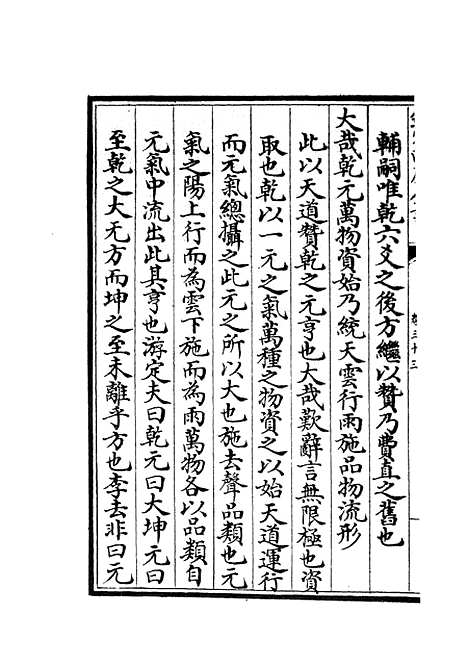 輔嗣唯乾六爻之後方繼以贊乃費直之舊也
大哉乾元萬物資始乃統天雲行雨施品物流形
此以天道贊乾之元亨也大哉歎辭言無限極也資
取也乾以一元之氣萬種之物資之以始天道運行
而元氣總攝之此元之所以大也施去聲品類也元
氣之陽上行而為雲下施而為雨萬物各以品類自
元氣中流出此其亨也游定夫曰乾元曰大坤元曰
至乾之大无方而坤之至未離乎方也李去非曰元